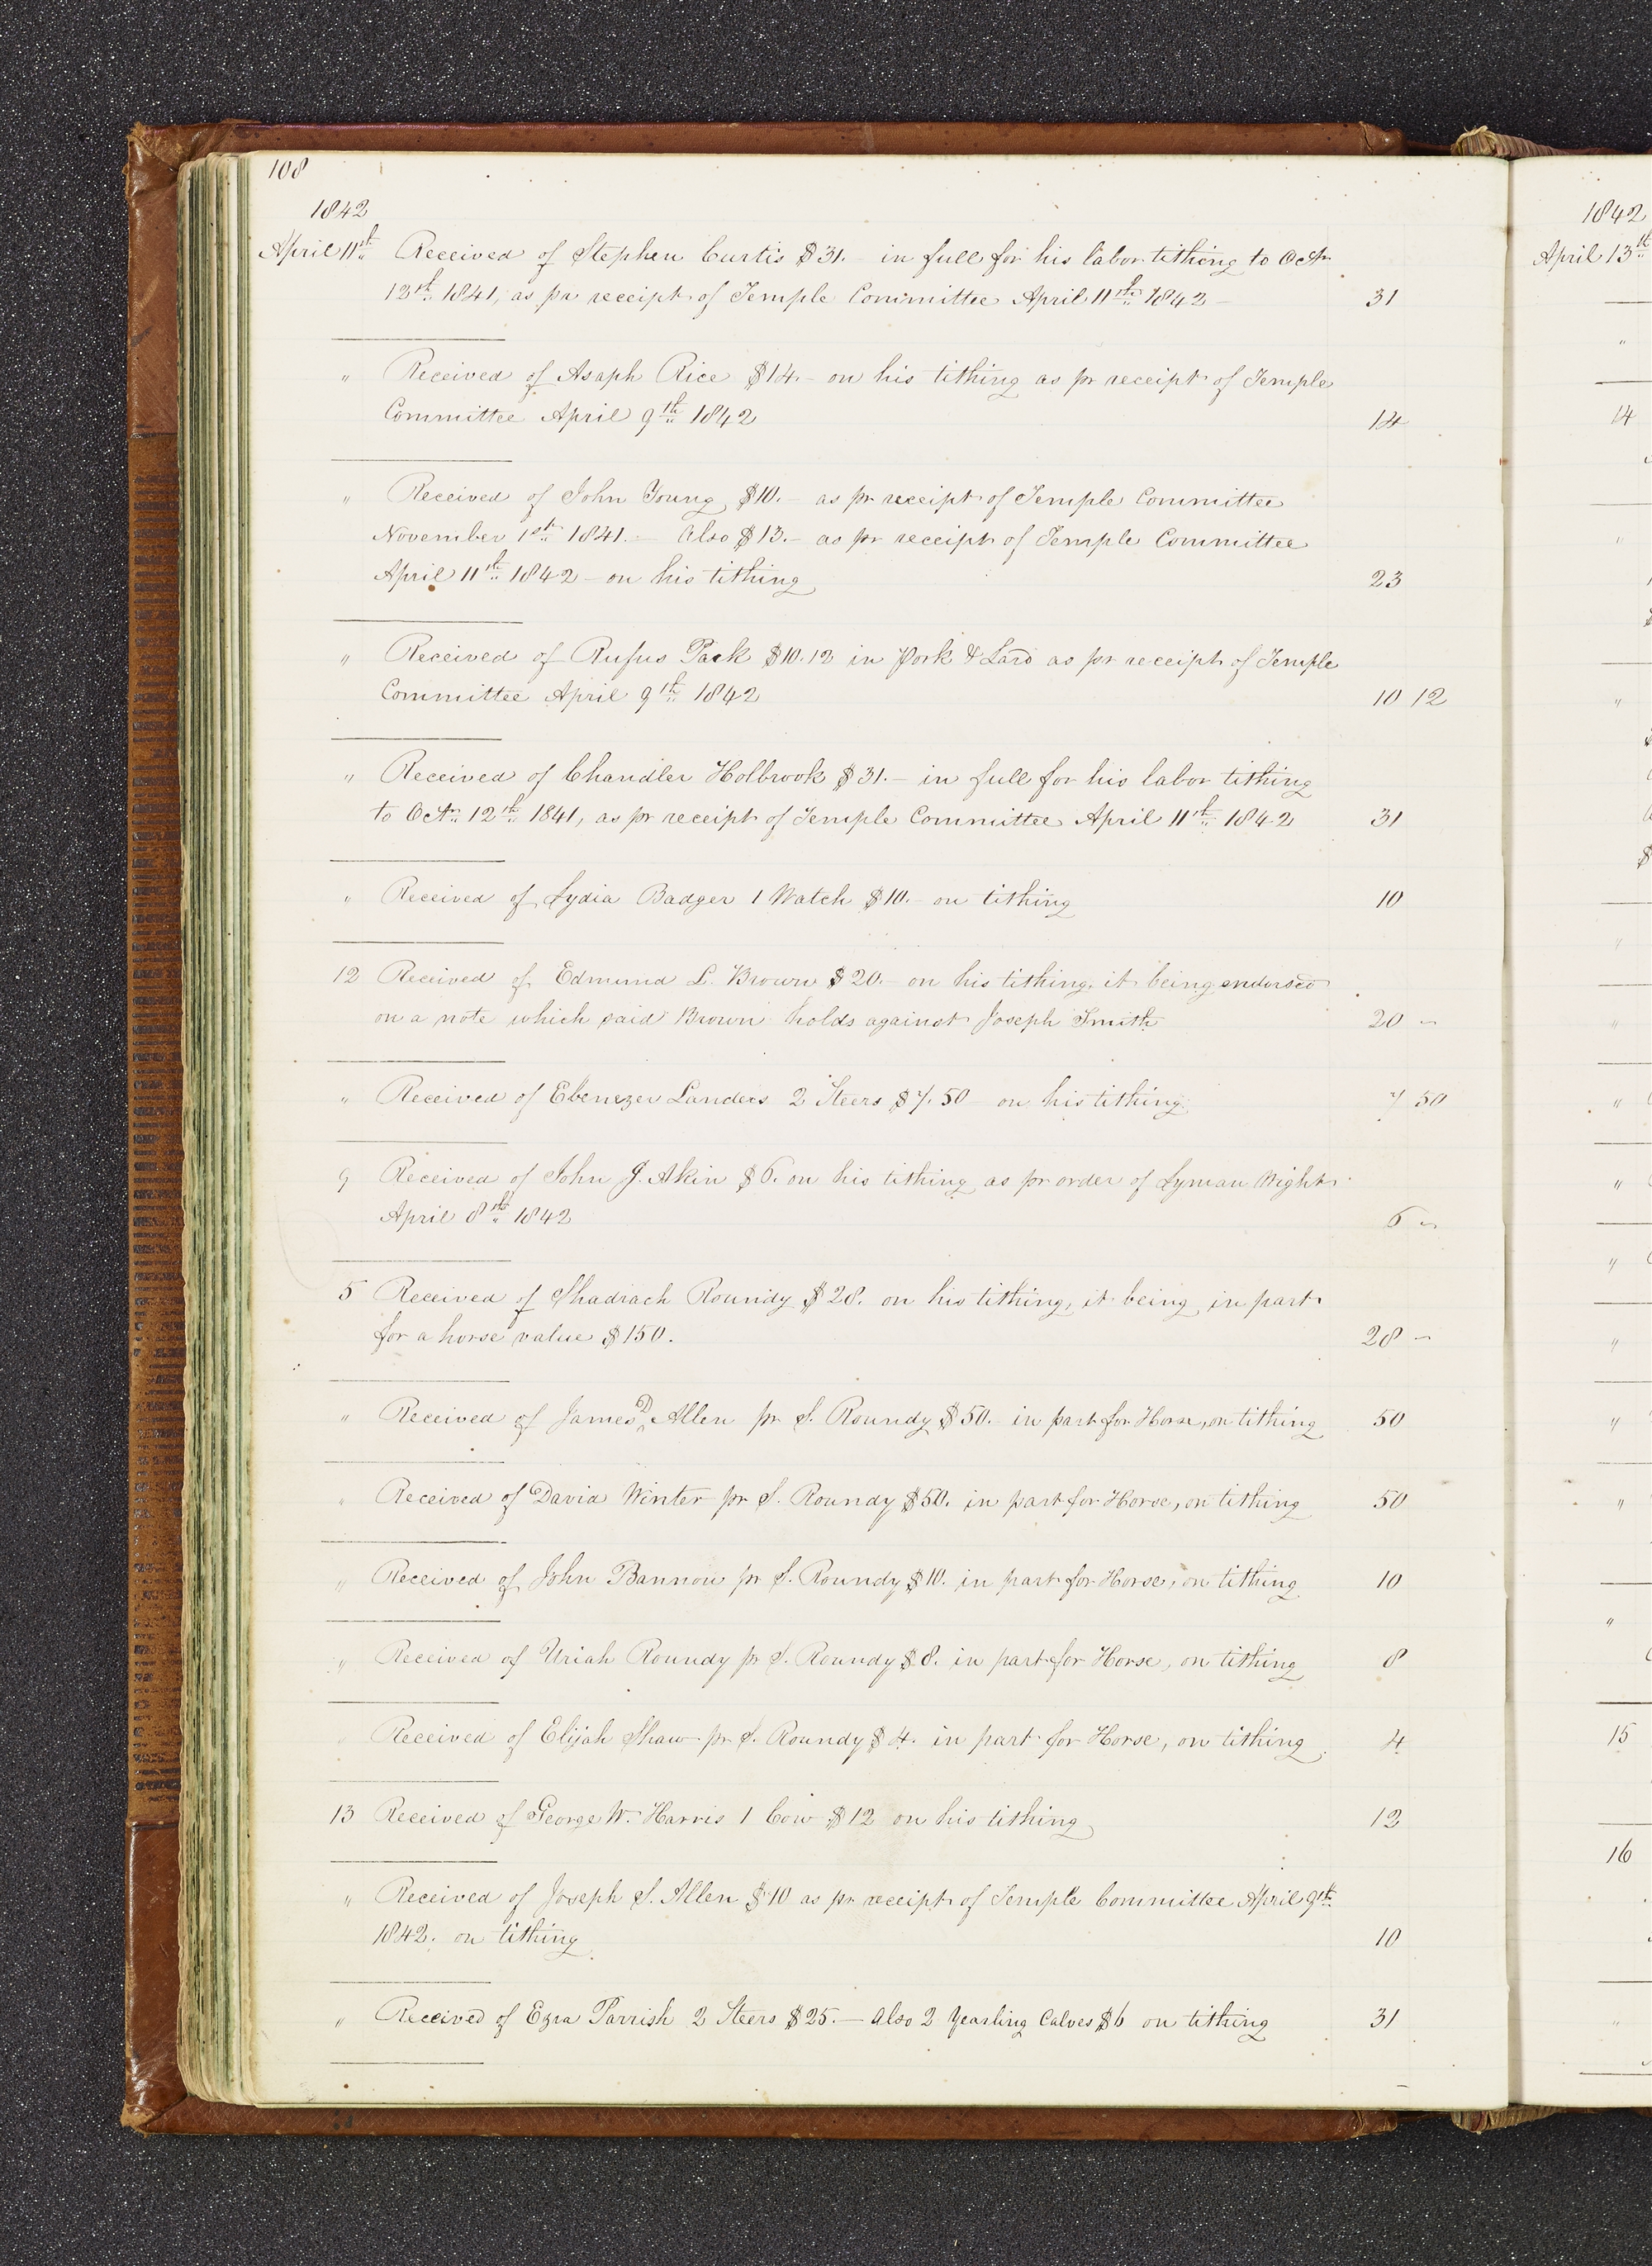 108
1842
April 11th Received of Stephen Curtis $31.– in full for his labor tithing to Octr
12th 1841, as pr receipt of Temple Committee April 11th 1842 – 31
" Received of Asaph Rice $14.– on his tithing as pr receipt of Temple
Committee April 9th 1842 14
" Received of John Young $10.– as pr receipt of Temple Committee
November 1st 1841.– Also $13.– as pr receipt of Temple Committee
April 11th 1842 – on his tithing 23
" Received of Rufus Pack $10.12 in Pork & Lard as pr receipt of Temple
Committee April 9th 1842 10 12
" Received of Chandler Holbrook $31.– in full for his labor tithing
to Octr 12th 1841, as pr receipt of Temple Committee April 11th 1842 31
" Received of Lydia Badger 1 Watch $10.– on tithing 10
12 Received of Edmund L. Brown $20.– on his tithing, it being endorsed
on a note which said Brown holds against Joseph Smith 20 –
" Received of Ebenezer Landers 2 Steers $7.50 – on his tithing 7 50
9 Received of John J. Akin $6. on his tithing as pr order of Lyman Wight
April 8th 1842 6 –
5 Received of Shadrach Roundy $28. on his tithing, it being in part
for a horse value $150. 28 –
" Received of James D Allen pr S. Roundy $50.– in part for Horse, on tithing 50
" Received of David Winter pr S. Roundy $50. in part for Horse, on tithing 50
" Received of John Bannon pr S. Roundy $10. in part for Horse, on tithing 10
" Received of Uriah Roundy pr S. Roundy $8. in part for Horse, on tithing 8
" Received of Elijah Shaw pr S. Roundy $4. in part for Horse, on tithing 4
13 Received of George W. Harris 1 Cow $12 on his tithing 12
" Received of Joseph S. Allen $10 as pr receipt of Temple Committee April 9th
1842. on tithing 10
" Received of Ezra Parrish 2 Steers $25.– Also 2 Yearling Calves $6 on tithing 31
1842
April 13th
"
14
"
"
"
"
"
"
"
"
"
"
"
15
16
"